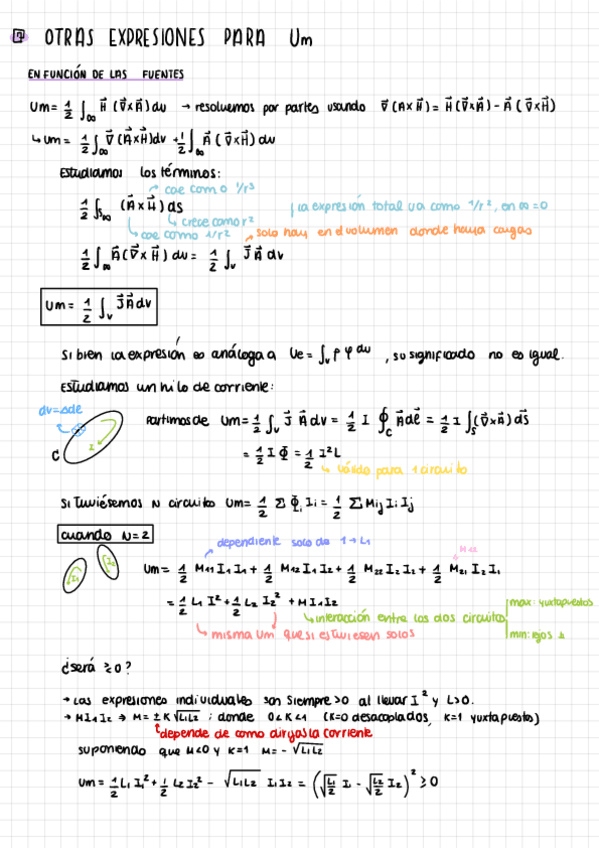 OTRAS EXPRESIONES PARA Um
EN FUNCIÓN DE LAS FUENTES
Um = 1/2 ∫∞ H⃗ (∇⃗xA⃗)dv → resolvemos por partes usando ∇⃗(AxH⃗) = H⃗(∇⃗xA⃗) - A⃗ (∇⃗xH⃗)
↳ Um = 1/2 ∫∞ ∇⃗(A⃗xH⃗)dv + 1/2 ∫∞ A⃗ (∇⃗xH⃗) dv
Estudiamos los términos:
cae como 1/r³
1/2 ∫S∞ (A⃗xH⃗) ds
la expresión total va como 1/r², en ∞ = 0
crece como r²
cae como 1/r²
solo hay en el volumen donde haya cargas
1/2 ∫∞ A⃗(∇⃗xH⃗) dv = 1/2 ∫v J⃗A⃗ dv
Um = 1/2 ∫v J⃗A⃗dv
Si bien la expresión es análoga a Ue = ∫v ρ φ dv, su significado no es igual.
Estudiamos un hilo de corriente:
dv = Δdl
C
I
Partimos de Um = 1/2 ∫v J⃗ A⃗ dv = 1/2 I ∮C A⃗dl⃗ = 1/2 I ∫S(∇⃗xA⃗)ds⃗
= 1/2 I Φ = 1/2 I²L
↳ válido para 1 circuito
Si tuviésemos N circuito Um = 1/2 Σ Φi Ii = 1/2 Σ Mij Ii Ij
cuando N=2
dependiente solo de 1 → L1
M12
I1
I2
Um = 1/2 M11 I1 I1 + 1/2 M12 I1 I2 + 1/2 M22 I2 I2 + 1/2 M21 I2 I1
= 1/2 L1 I² + 1/2 L2 I2² + M I1 I2
↳ interacción entre los dos circuitos
max: yuxtapuestos
min: lejos ⊥
↳ misma Um que si estuviesen solos
¿será ≥0?
→ Las expresiones individuales son siempre >0 al llevar I² y L>0.
→ M I1 I2 → M = ± K√L1L2 ; donde 0<K<1 (K=0 desacoplados, K=1 yuxtapuestos)
depende de como dirijas la corriente
suponiendo que M<0 y K=1 M = - √L1L2
Um = 1/2 L1 I1² + 1/2 L2 I2² - √L1L2 I1I2 = (√L1/2 I1 - √L2/2 I2)² ≥0